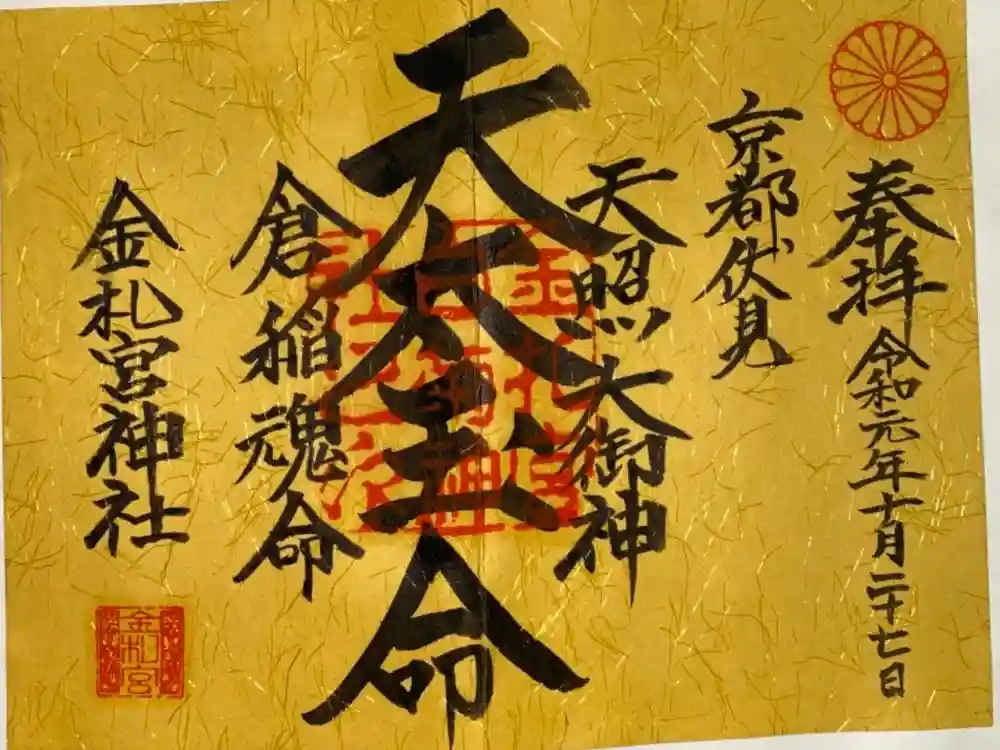 奉拝 令和元年十月二十七日
京都伏見
天照大御神
天太玉命
倉稲魂命
金札宮神社
金札宮